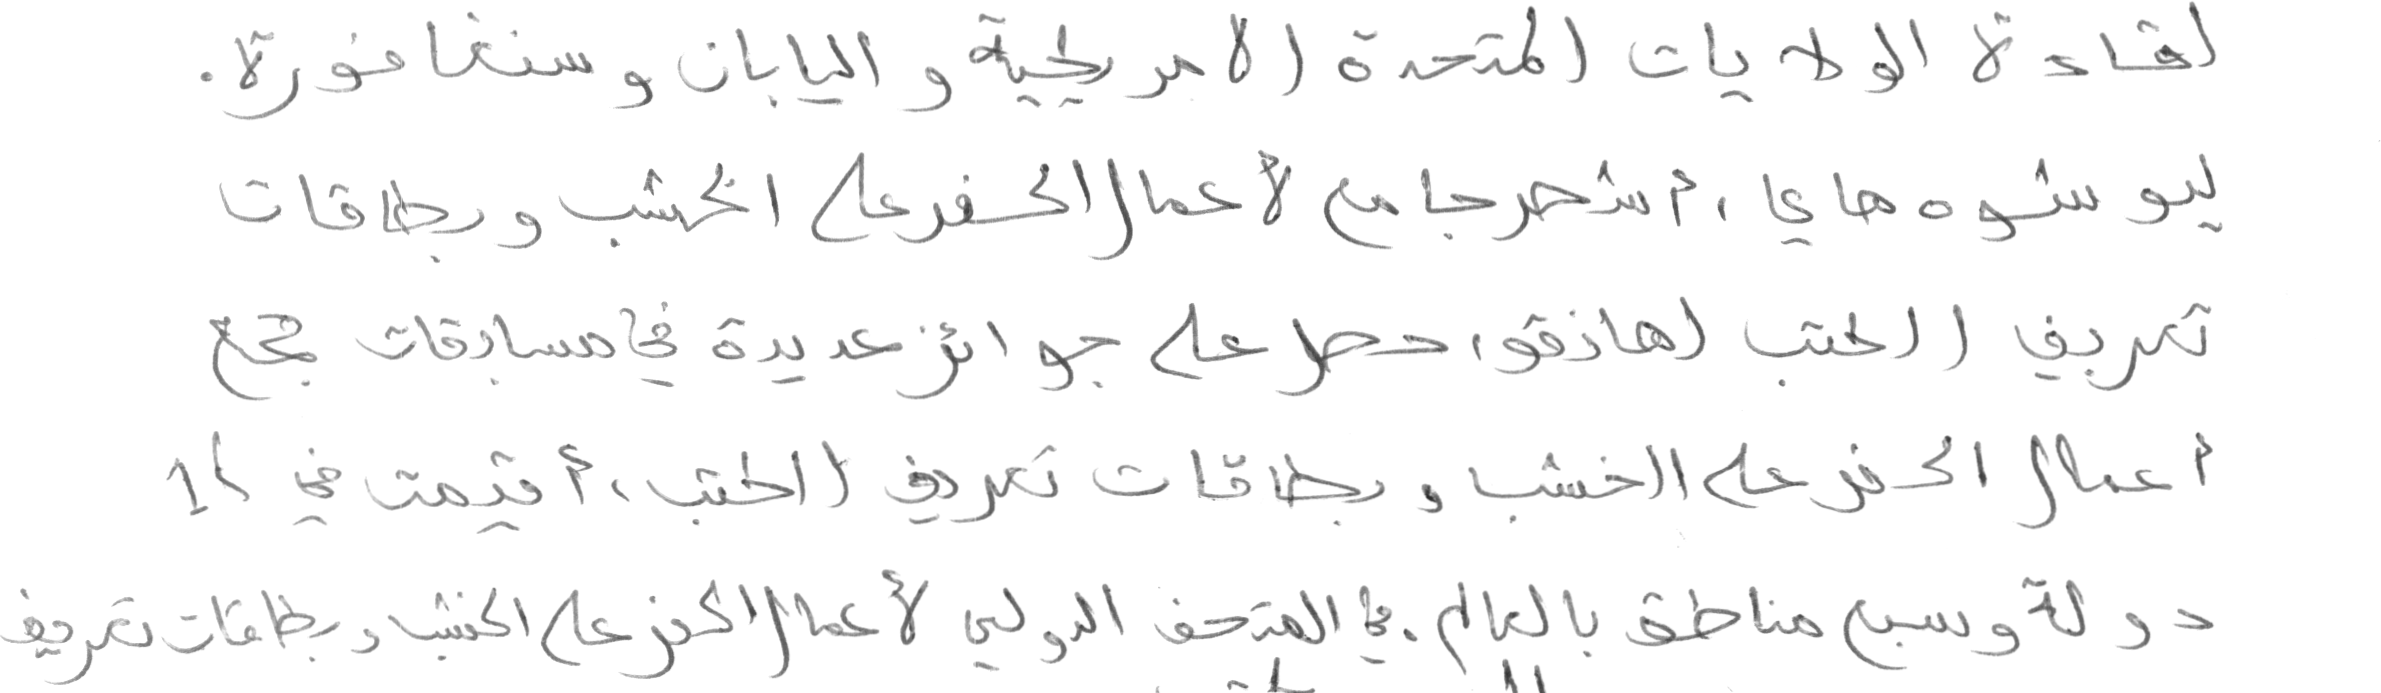 لقادة الولايات المتحدة الامريكية و اليابان و سنغافورة.
ليو شوه هاي، أشهر جامع لأعمال الحفر على الخشب و بطاقات
تعريف الكتب لهانقو، حصل على جوائز عديدة في مسابقات جمع
أعمال الحفر على الخشب و بطاقات تعريف الكتب، أقيمت في 16
دولة و سبع مناطق بالعالم. في المتحف الدولي لأعمال الحفر على الخشب و بطاقات تعريف